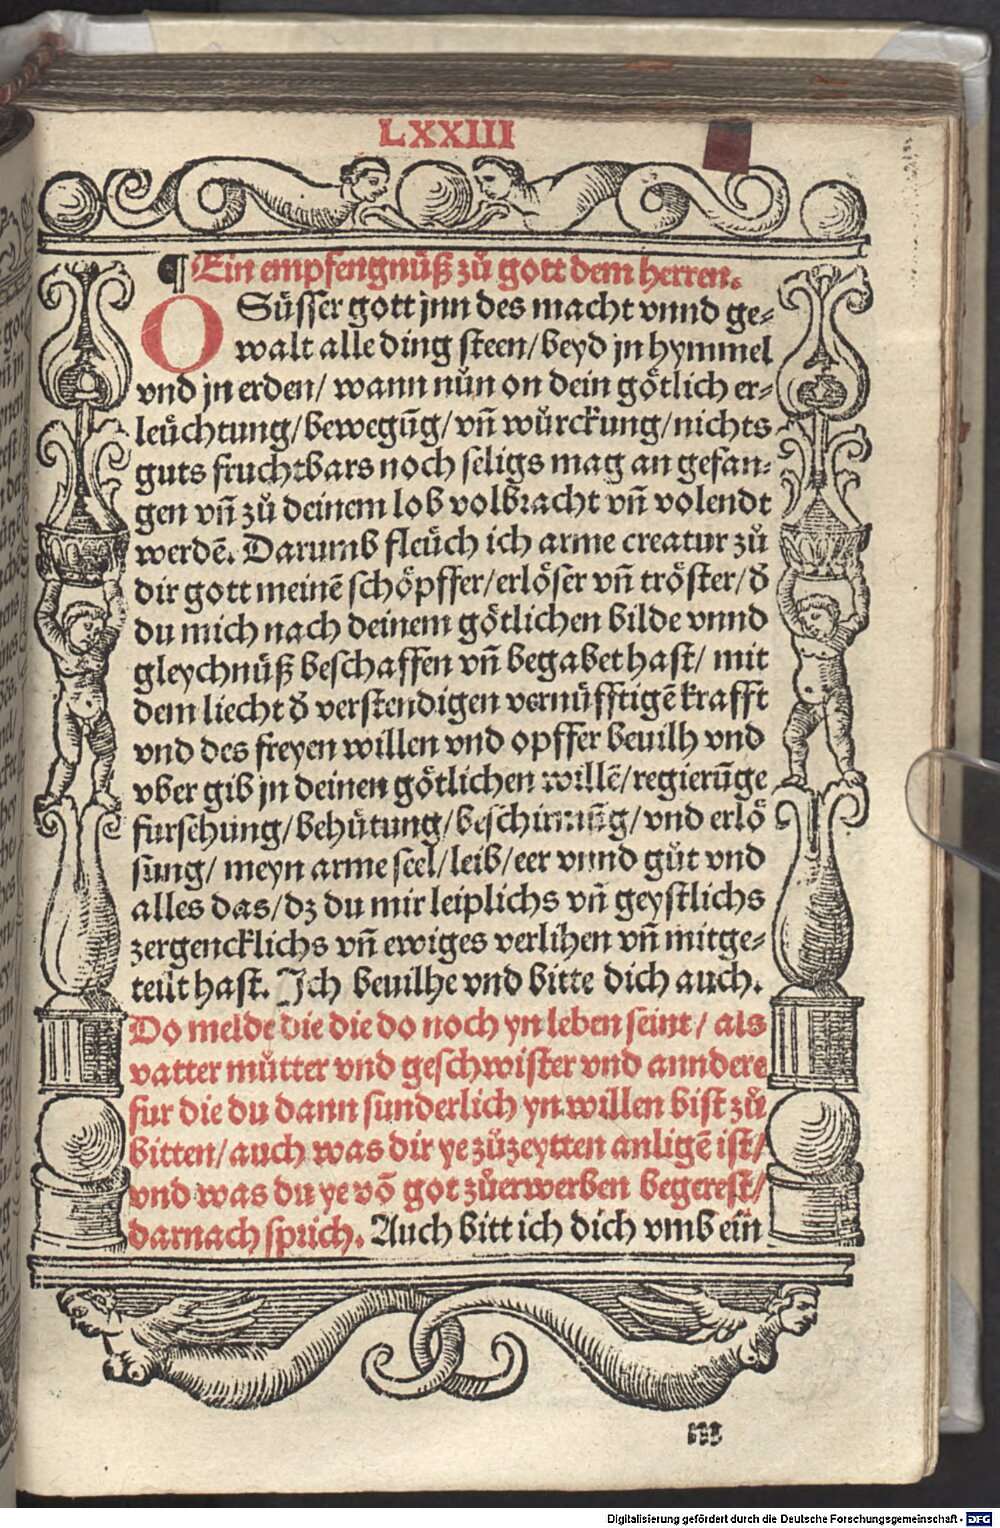 LXXIII
¶ Ein empfengnüß zů gott dem herren.
O Süsser gott jnn des macht vnnd ge⸗
walt alle ding steen/beyd jn hymmel
vnd jn erden/ wann nůn on dein götlich er⸗
leüchtung/bewegūg/vn̄ würckung/nichts
guts fruchtbars noch seligs mag an gefan⸗
gen vn̄ zů deinem lob volbracht vn̄ volendt
werdē. Darumb fleüch ich arme creatur zů
dir gott meinē schöpffer/erlöser vn̄ tröster/d̕
du mich nach deinem götlichen bilde vnnd
gleychnüß beschaffen vn̄ begabet hast/ mit
dem liecht d̕ verstendigen vernüfftigē krafft
vnd des freyen willen vnd opffer beuilh vnd
vber gib jn deinen götlichen willē/regierūge
fursehung/behütung/beschirmūg/vnd erlö
sung/ meyn arme seel/leib/eer vnnd gůt vnd
alles das/dz du mir leiplichs vn̄ geystlichs
zergencklichs vn̄ ewiges verlihen vn̄ mitge⸗
teilt hast. Ich beuilhe vnd bitte dich auch.
Do melde die die do noch yn leben seint/ als
vatter můtter vnd geschwister vnd anndere
fur die du dann sunderlich yn willen bist zů
bitten/auch was dir ye zůzeytten anligē ist/
vnd was du ye vō got zůerwerben begerest/
darnach sprich. Auch bitt ich dich vmb ein
Digitalisierung gefördert durch die Deutsche Forschungsgemeinschaft - DFG